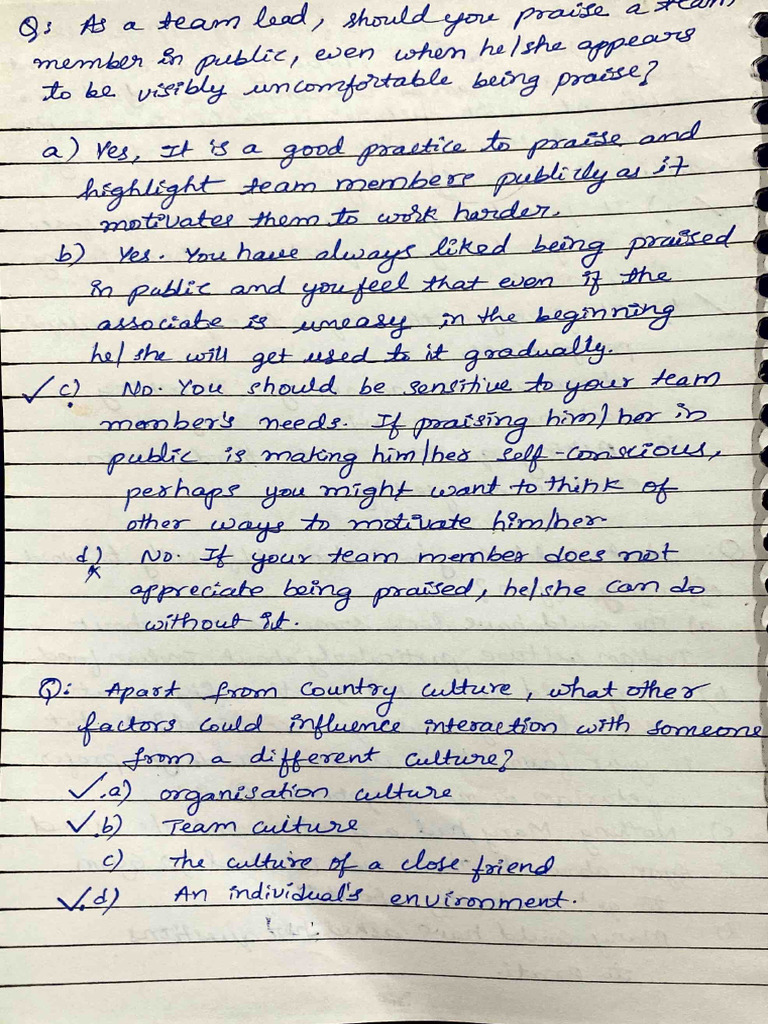 Q: As a team lead, should you praise a team
member in public, even when he/she appears
to be visibly uncomfortable being praise?
a) Yes, It is a good practice to praise and
highlight team members publicly as it
motivates them to work harder.
b) Yes. You have always liked being praised
in public and you feel that even if the
associate is uneasy in the beginning
he/she will get used to it gradually.
✓ c) No. You should be sensitive to your team
member's needs. If praising him/her in
public is making him/her self-conscious,
perhaps you might want to think of
other ways to motivate him/her
d) No. If your team member does not
appreciate being praised, he/she can do
without it.
Q: Apart from country culture, what other
factors could influence interaction with someone
from a different culture?
✓ a) organisation culture
✓ b) Team culture
c) The culture of a close friend
✓ d) An individual's environment.